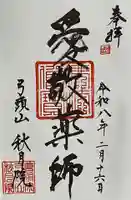 奉拝
令和八年二月十六日
愛敬薬師
弓頭山
秋月院